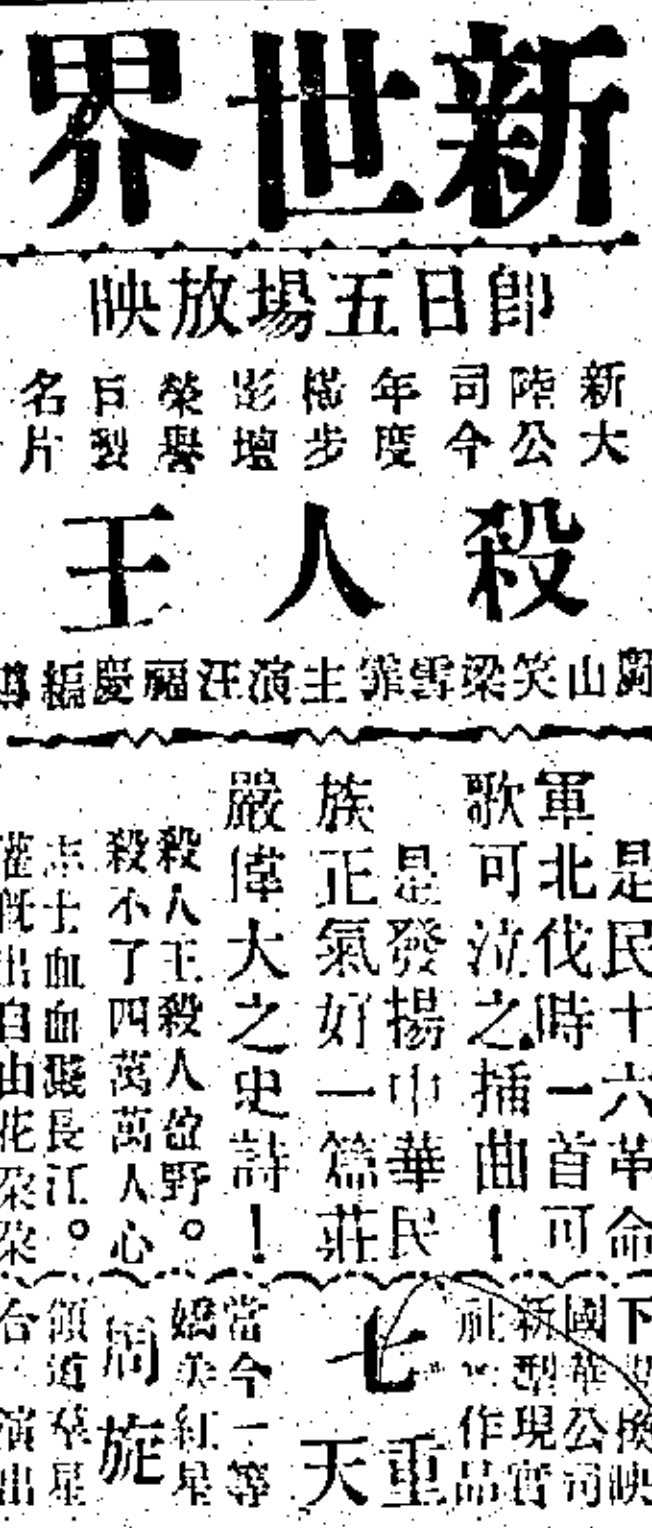 新世界
即日五場放映
新大陸公司今年度橫步影壇榮譽巨製名片
殺人王
鄺山笑梁雪霏主演汪福慶編導
是民十六革命
軍北伐時一首可
歌可泣之插曲！
是發揚中華民
族正氣好一篇莊
嚴偉大之史詩！
殺人王殺人盈野。
殺不了四萬萬人心
志士血血濺長江。
灌溉出自由花朶朶
下換映
國華公司
新型現實
社作品
七重天
當今一等
嬌美紅星
周旋
領導羣星
合演出